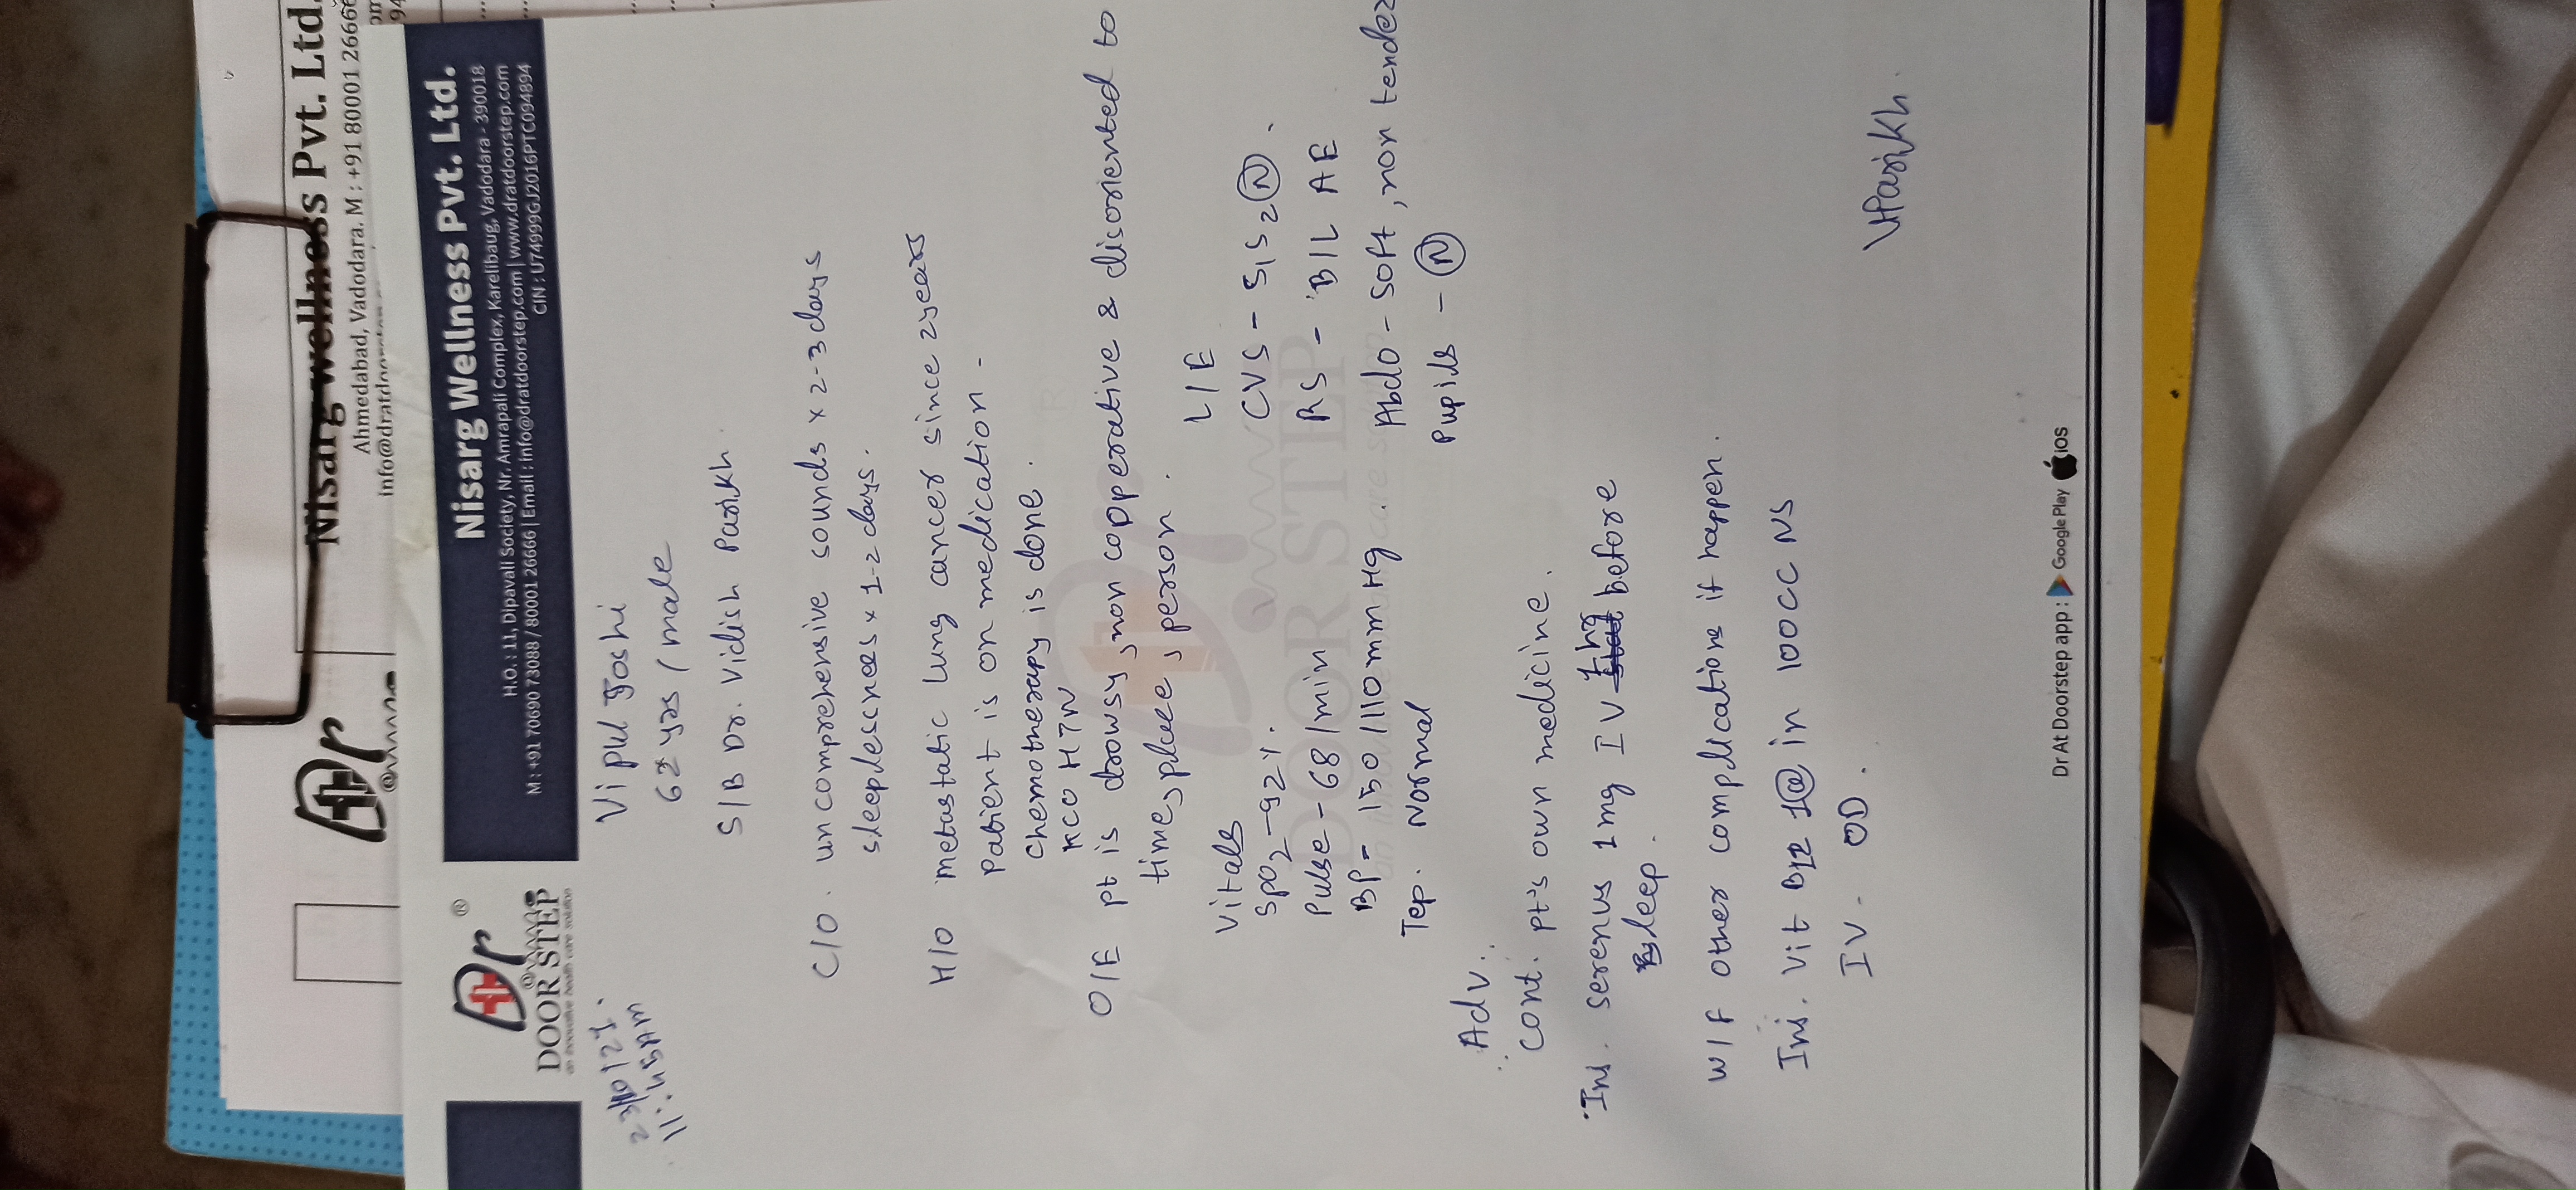 Nisarg wellness Pvt. Ltd.
Ahmedabad, Vadodara. M : +91 80001 26666
Dr
Nisarg Wellness Pvt. Ltd.
H.O. : 11, Dipavali Society, Nr. Amrapali Complex, Karelibaug, Vadodara - 390018
M : +91 70690 73088 / 80001 26666 | Email : info@dratdoorstep.com | www.dratdoorstep.com
CIN : U74999GJ2016PTC094894
Dr ®
DOOR STEP
an innovative health care solution
11:45AM
Vipul Joshi
yrs / male
S/B Dr. Vidish Parikh
C/O. uncomprehensive sounds x 2-3 days
sleeplescnees x 1-2 days.
H/O metastatic lung cancer since 2 years
Patient is on medication -
chemotherapy is done.
KCO HTN
O/E pt is drowsy, non cooperative & disoriented to
time, place, person.
Vitals
SpO2 - 92%.
Pulse - 68 /min
BP - 150/110 mm Hg.
Tep. Normal
L/E
CVS - S1S2 (N).
RS - B/L AE
Abdo - soft, non tender
Pupils - (N)
Adv.
cont. pt's own medicine.
Inj. serenus 1mg IV 1 hr before
sleep.
W/F other complications if happen.
Inj. Vit B12 1@ in 100CC NS
IV - OD.
VParikh
Dr At Doorstep app : Google Play iOS